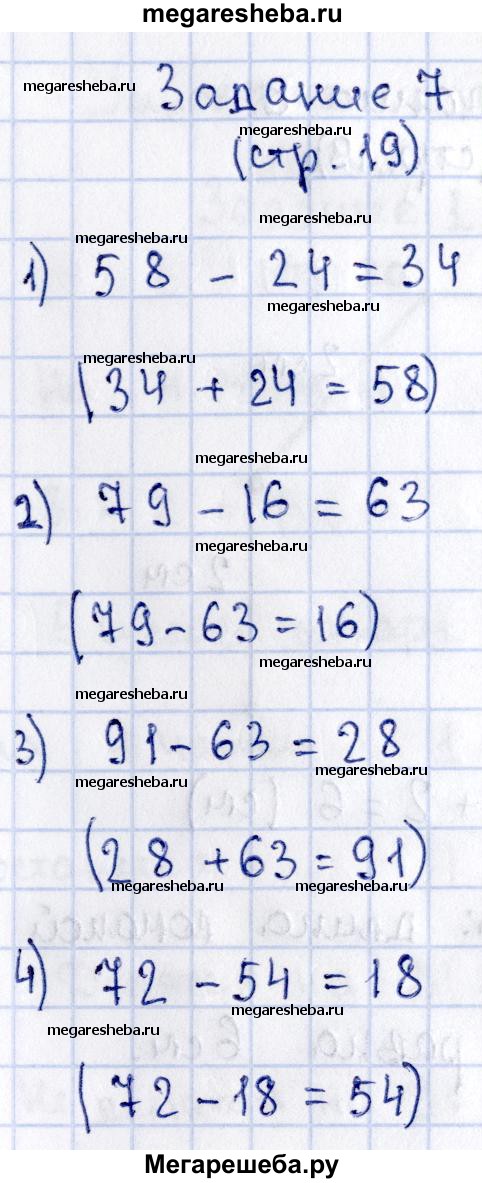 megaresheba.ru
megaresheba.ru
Задание 7
megaresheba.ru
(стр. 19)
megaresheba.ru
megaresheba.ru
1) 58 - 24 = 34
megaresheba.ru
megaresheba.ru
(34 + 24 = 58)
megaresheba.ru
2) 79 - 16 = 63
megaresheba.ru
(79 - 63 = 16)
megaresheba.ru
megaresheba.ru
3) 91 - 63 = 28
megaresheba.ru
megaresheba.ru
(28 + 63 = 91)
megaresheba.ru megaresheba.ru
4) 72 - 54 = 18
megaresheba.ru
megaresheba.ru
(72 - 18 = 54)
Мегарешеба.ру